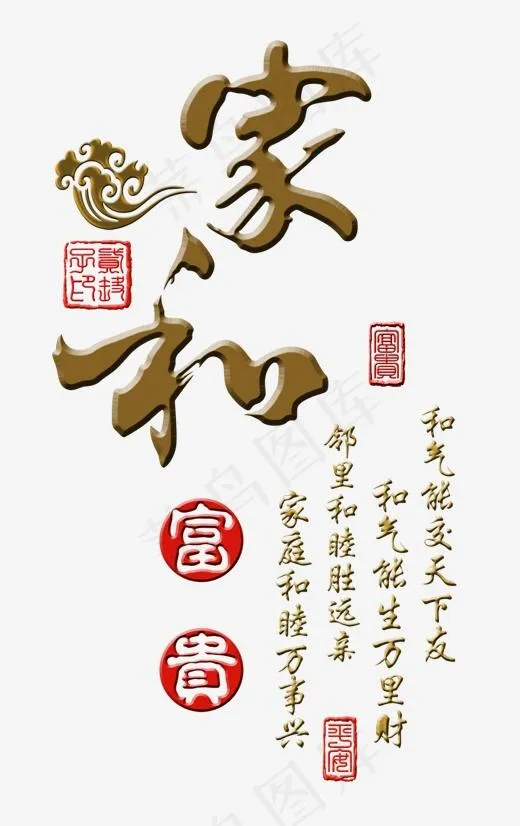 家和
和气能交天下友
和气能生万里财
邻里和睦胜远亲
家庭和睦万事兴
富貴
富貴
平安
菜鸟图库